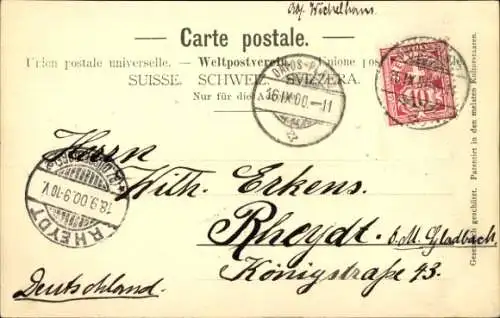 Abs. Wichelhaus.
Carte postale.
Union postale universelle. — Weltpostverein. — Unione postale universale.
SUISSE. SCHWEIZ. SVIZZERA.
Nur für die Adresse.
DAVOS-P
16.IX.00.-11
16.IX.00
10
Herrn
Wilh. Erkens.
Rheydt. b. M. Gladbach
Königstraße 43.
Deutschland.
18.9.00.9-10V.
RHEYDT
Gesetzlich geschützt. Patentirt in den meisten Kulturstaaten.